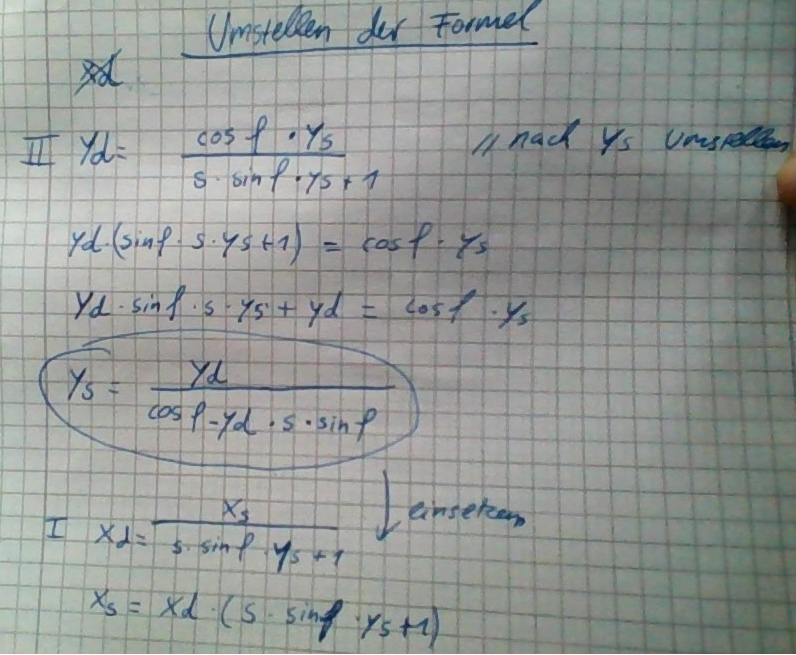 Umstellen der Formel
xd
II yd = cos f · ys / s · sin f · ys + 1 // nach ys Umstellen
yd · (sin f · s · ys + 1) = cos f · ys
yd · sin f · s · ys + yd = cos f · ys
ys = yd / cos f - yd · s · sin f
einsetzen
I xd = xs / s · sin f · ys + 1
xs = xd · (s · sin f · ys + 1)